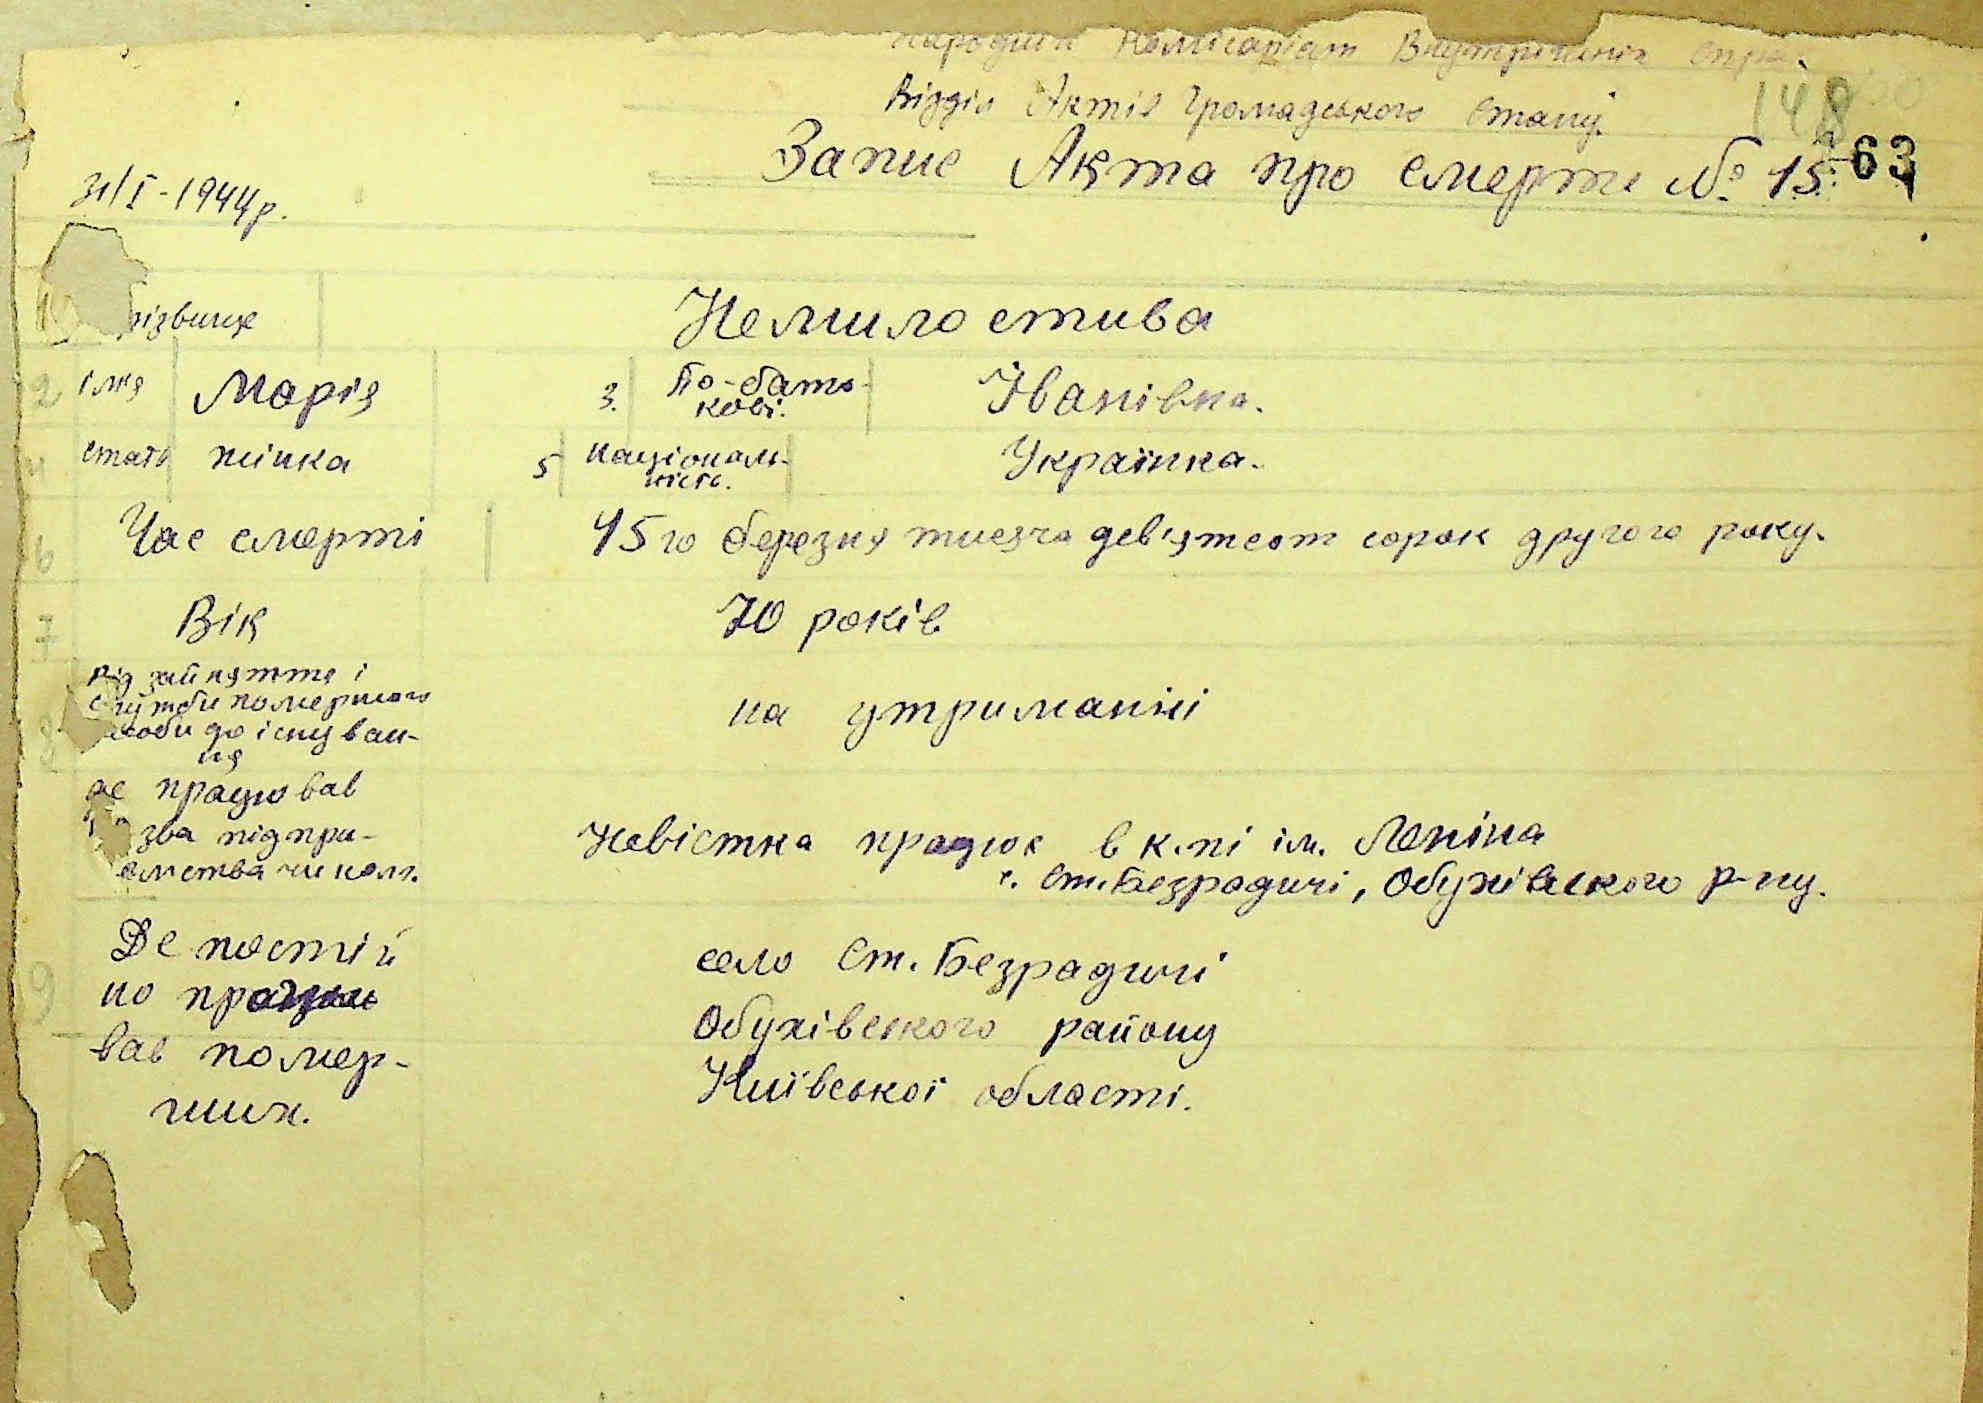 Народний Комісаріат Внутрішніх Спра.
Відділ Актів Громадського Стану.
148
Запис Акта про смерть № 15. 63
31/I-1944р.
різвище Немилостива
2 ім'я Марія 3. По-бать-
кові. Іванівна.
4 стать жінка 5 національ-
ність. Українка.
6 Час смерті 15го березня тисяча дев'ятсот сорок другого року.
7 Вік 70 років
8 Від зайняття і
служби помершого
засоби до існуван-
ня на утриманні
де працював
зва підпри-
ємства чи колг. Невістка працює в к.пі ім. Леніна
с. Ст. Безрадичі, Обухівського р-ну.
9 Де постій
но прожи
вав помер-
ших. село Ст. Безрадичі
Обухівского району
Київської області.